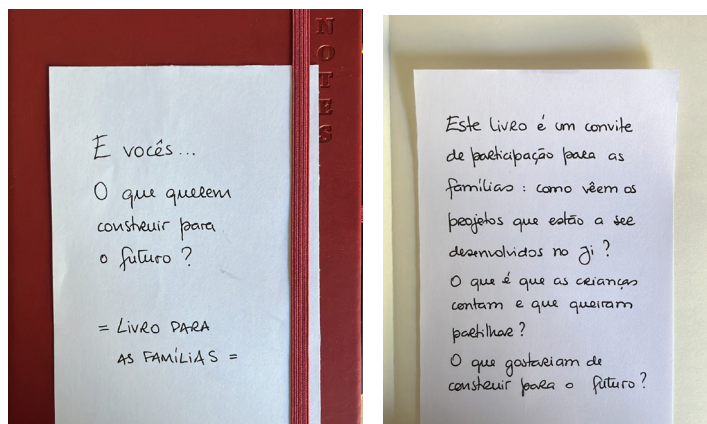 NOTES
E vocês...
O que querem
construir para
o futuro?
= LIVRO PARA
AS FAMÍLIAS =
Este livro é um convite
de participação para as
famílias: como vêem os
projetos que estão a ser
desenvolvidos no ji?
O que é que as crianças
contam e que queiram
partilhar?
O que gostariam de
construir para o futuro?